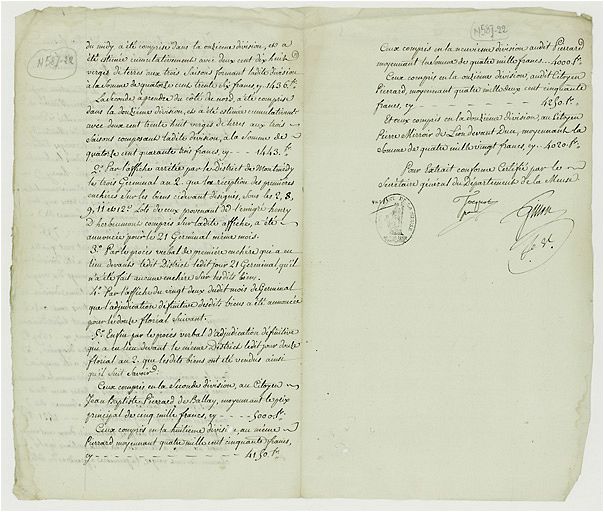 N587-22
du midy a été comprise dans la onzième division, et a
été estimé cumulativement avec deux cent dix huit
verges de terres aux trois saisons formant ladite division
à la somme de quatorze cent trente six francs, cy 1436 fr.
La seconde a prendre du côté du nord, a été comprise
dans la douzième division, et a été estimée cumulativement
avec deux cent trente huit verges de terres aux trois
saisons composant ladite division, à la somme de
quatorze cent quarante trois francs, cy - 1443. fr.
2.° Par l'affiche arrêtée par le District de Montmédy
le trois Germinal an 2. que la réception des premières
enchères sur les biens cidevant désignés, sous les 2, 8,
9, 11 et 12.e Lots de ceux provenant de l'émigré henry
d'herbemont compris sur ladite affiche, a été
annoncée pour le 21 Germinal même mois.
3.° Par le procès verbal de première enchère qui a eu
lieu devant ledit District ledit jour 21 Germinal qu'il
n'a été fait aucune enchère sur lesdits biens.
4.° Par l'affiche du vingt deux dudit mois de Germinal
que l'adjudication définitive desdits biens a été annoncée
pour le douze floréal suivant.
5.° Enfin par le procès verbal d'adjudication définitive
qui a eu lieu devant le même District ledit jour douze
floréal an 2. que lesdits biens ont été vendus ainsi
qu'il suit savoir
Ceux compris en la seconde division, au Citoyen
Jean Baptiste Pierrard de Ballay, moyennant le prix
principal de cinq mille francs, cy - 5000 fr.
Ceux compris en la huitième division, au même
Pierrard moyennant quatre mille cent cinquante francs,
cy - 4150. fr.
N587-22
Ceux compris en la neuvième division audit Pierrard
moyennant la somme de quatre mille francs - 4000 fr.
Ceux compris en la onzième division, audit Citoyen
Pierrard, moyennant quatre mille deux cent cinquante
francs, cy - 4250. fr.
Et ceux compris en la douzième division, au Citoyen
Pierre de Lion devant Dun, moyennant la
somme de quatre mille vingt francs, cy - 4020. fr.
Pour Extrait conforme Certifié par le
Secrétaire général du Département de la Meuse